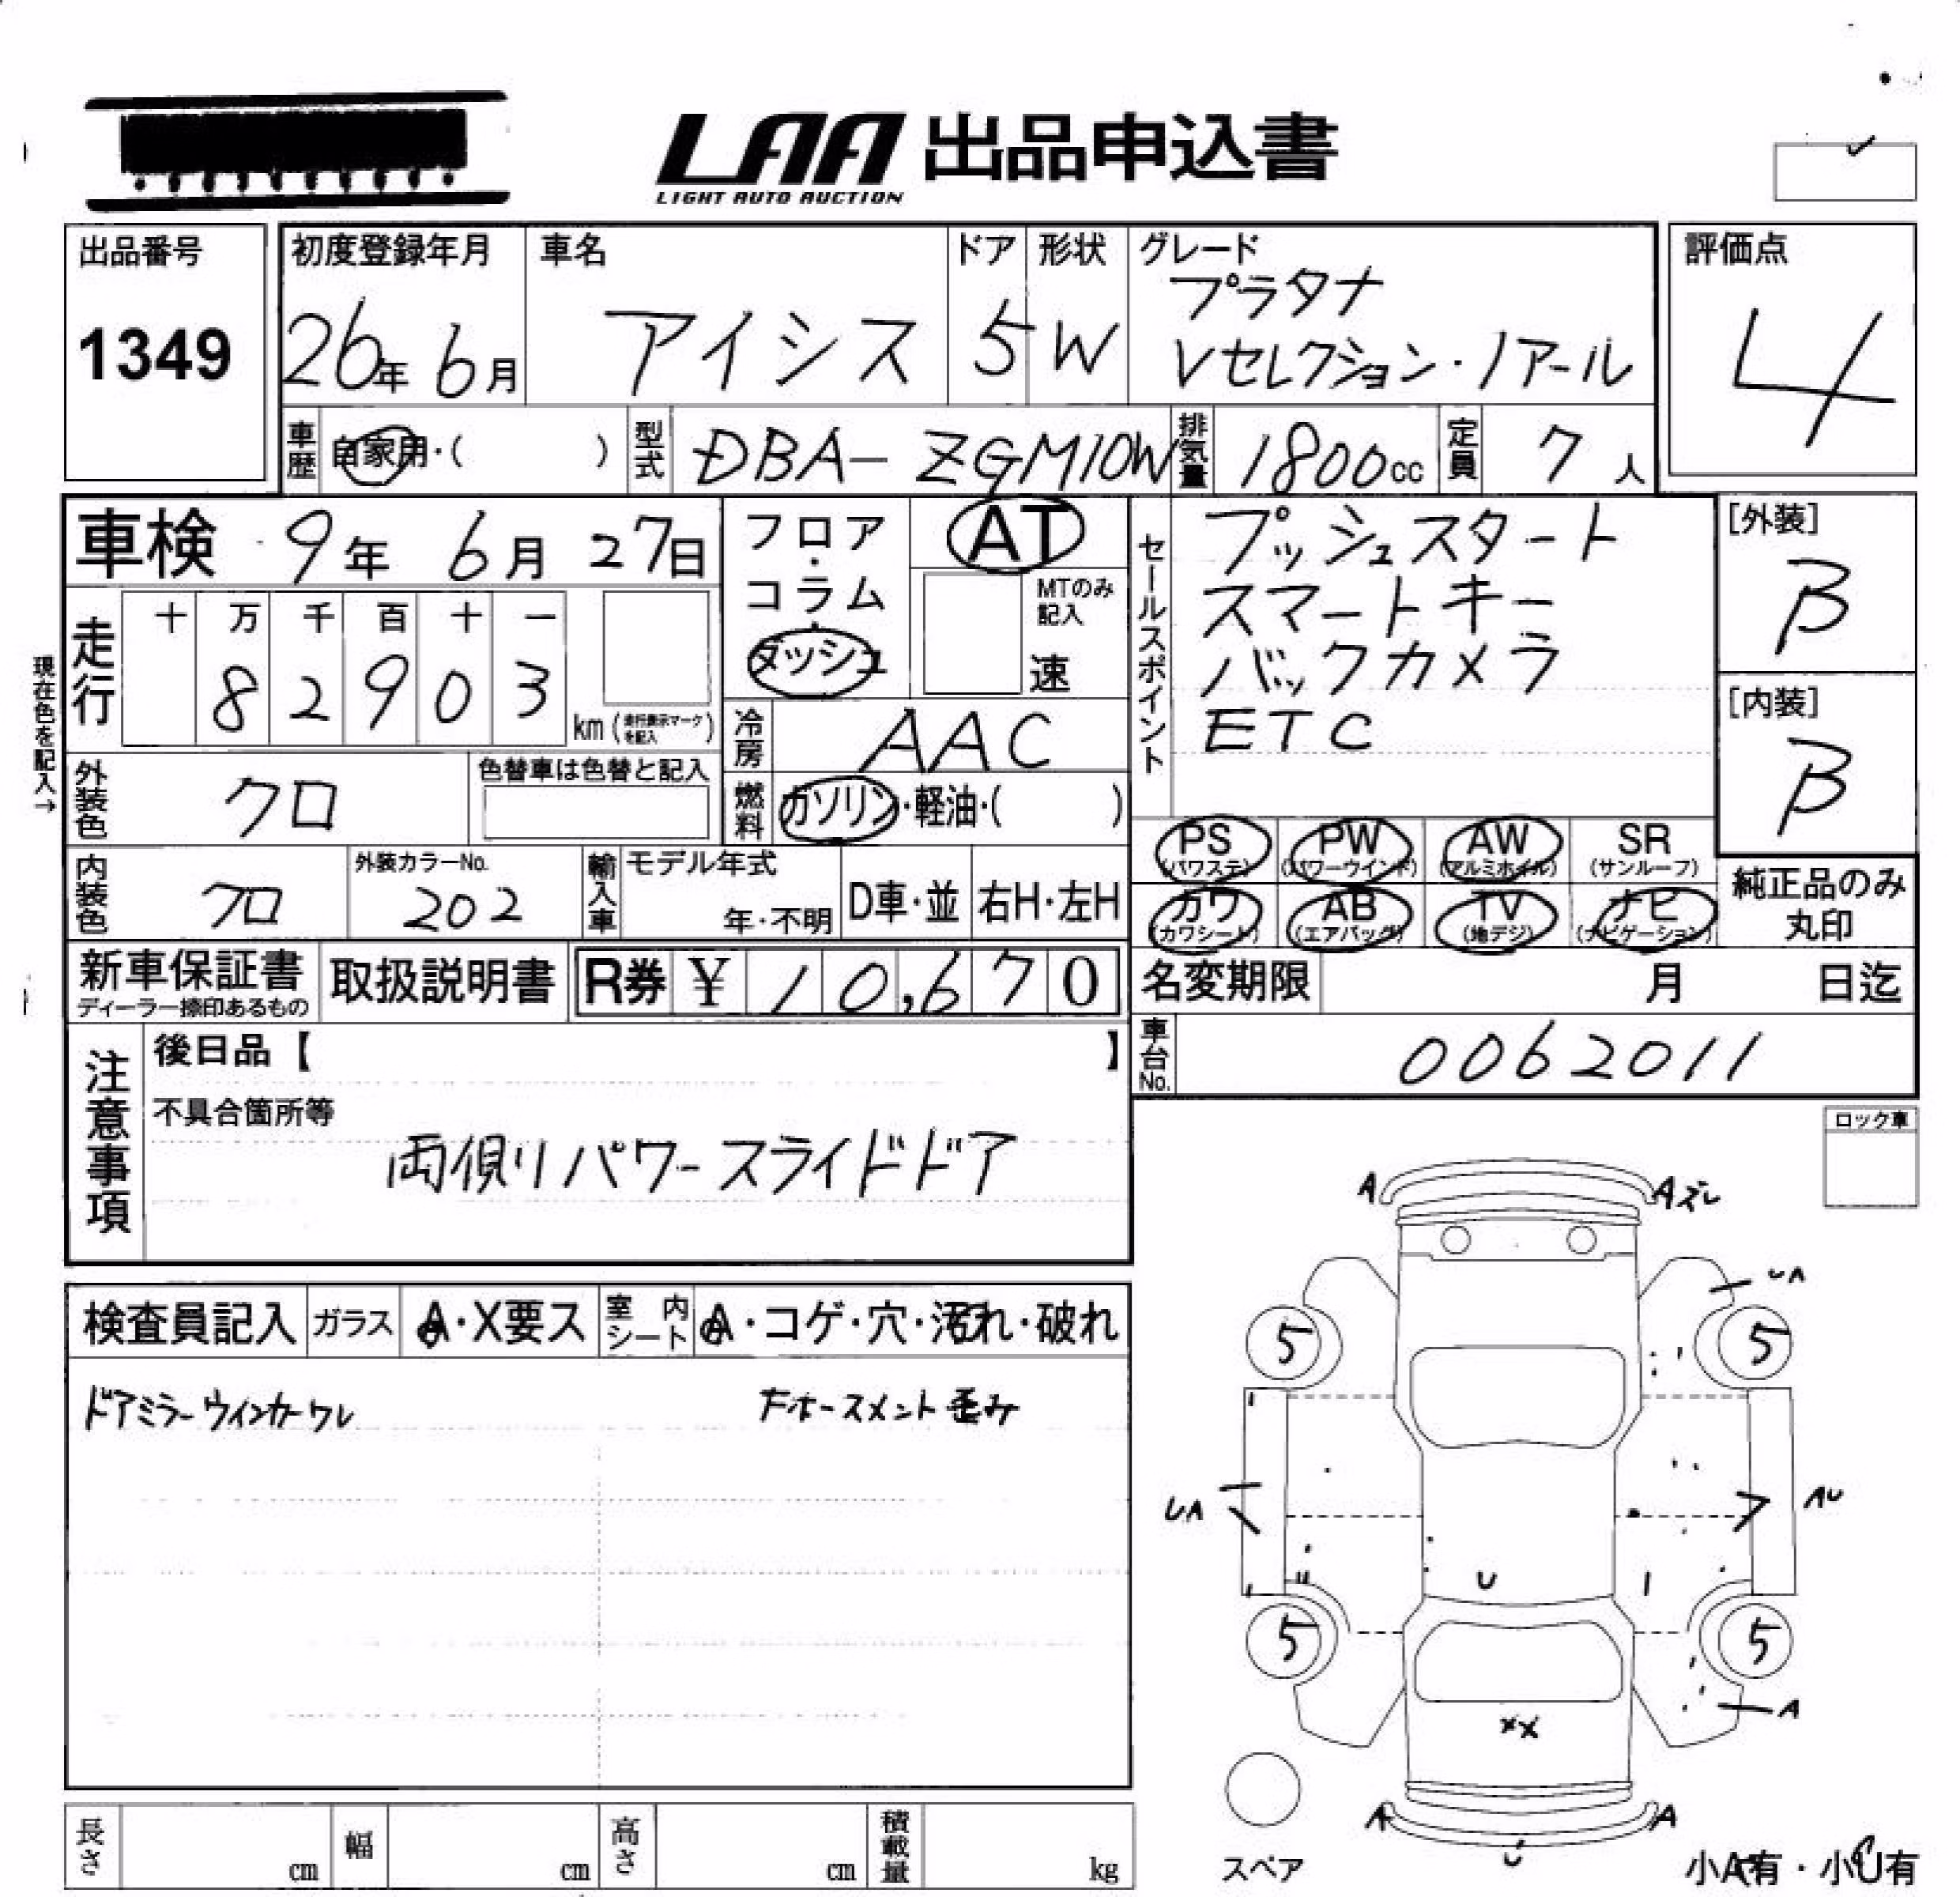 LAA 出品申込書
LIGHT AUTO AUCTION
出品番号
1349
初度登録年月
26年 6月
車名
アイシス
ドア
5
形状
W
グレード
プラタナ
Vセレクション・ノアール
評価点
4
車歴
自家用・( )
型式
DBA-ZGM10W
排気量
1800cc
定員
7人
車検 9年 6月 27日
フロア・コラム・ダッシュ
AT
MTのみ記入
速
セールスポイント
プッシュスタート
スマートキー
バックカメラ
ETC
[外装]
B
[内装]
B
現在色を記入→
走行
十 万 千 百 十 一
8 2 9 0 3
km (走行表示マークを記入)
冷房
AAC
外装色
クロ
色替車は色替と記入
燃料
ガソリン・軽油・( )
PS (パワステ)
PW (パワーウインド)
AW (アルミホイル)
SR (サンルーフ)
カワ (カワシート)
AB (エアバッグ)
TV (地デジ)
ナビ (ナビゲーション)
純正品のみ丸印
内装色
クロ
外装カラーNo.
202
輸入車
モデル年式
年・不明
D車・並
右H・左H
新車保証書
ディーラー捺印あるもの
取扱説明書
R券 ¥ 10,670
名変期限 月 日迄
車台No.
0062011
注意事項
後日品【 】
不具合箇所等
両側パワースライドドア
ロック車
検査員記入
ガラス
A・X要ス
室内シート
A・コゲ・穴・汚れ・破れ
ドアミラーウインカーワレ
Fホースメント歪み
A
Aズレ
UA
5
5
UA
AU
U
U
5
5
A
XX
A
A
U
スペア
小A有・小U有
長さ cm
幅 cm
高さ cm
積載量 kg